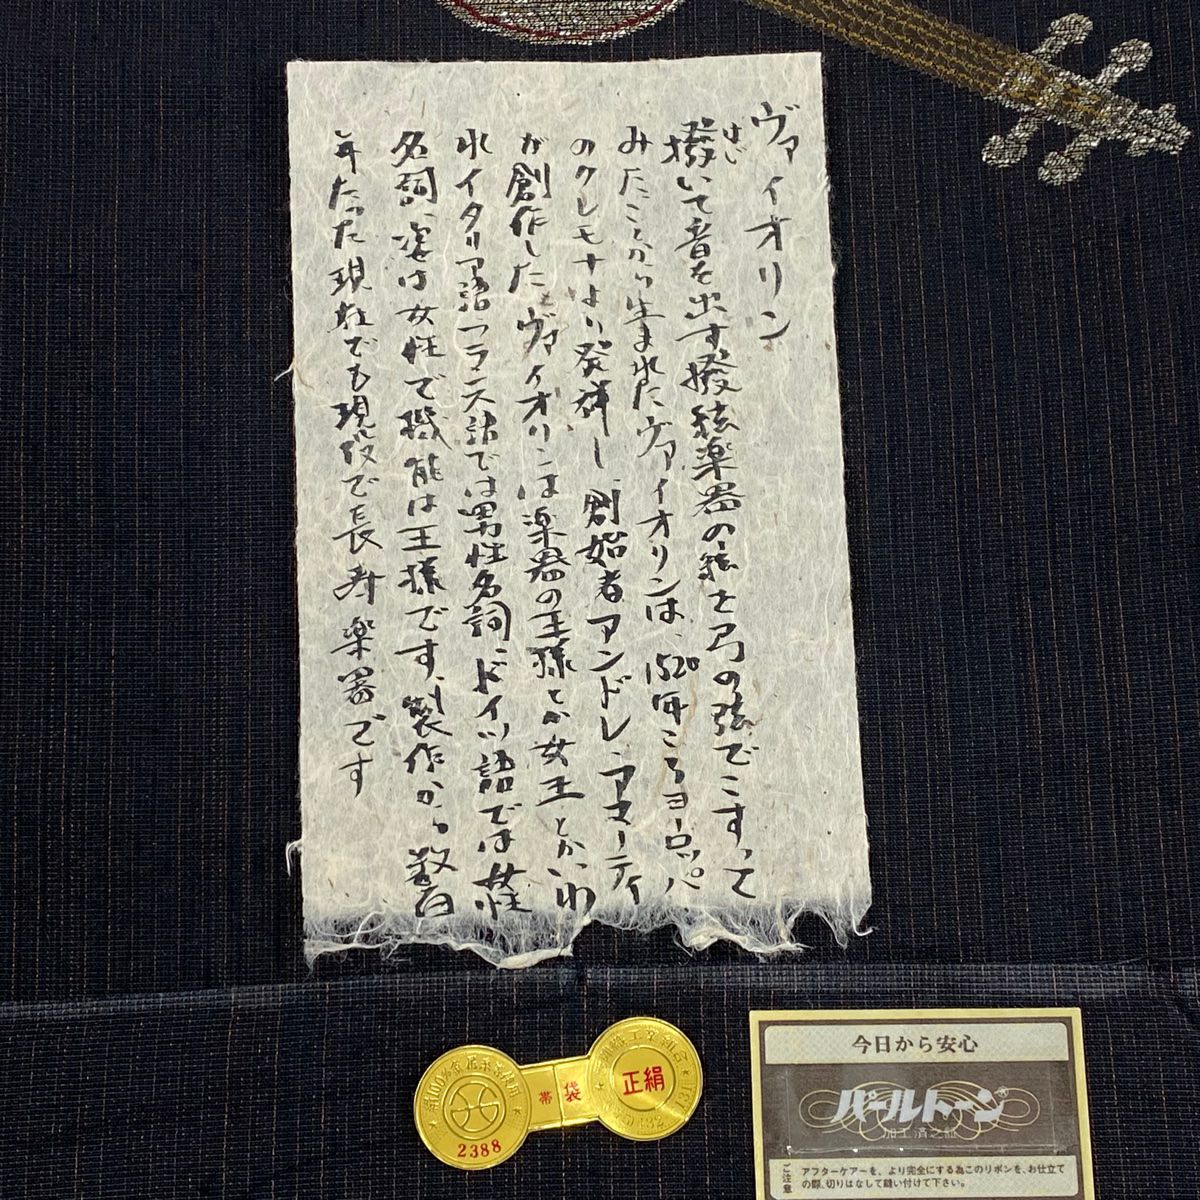 ヴァイオリン
撥いて音を出す撥弦楽器の弦を弓の弦でこすって
みたことから生まれたヴァイオリンは、1520年ころヨーロッパ
のクレモナより発祥し、創始者アンドレ・アマーティ
が創作した。ヴァイオリンは楽器の王様とか女王とかいわ
れイタリア語フランス語では男性名詞、ドイツ語では女性
名詞、姿は女性で機能は王様です。製作から数百
年たった現在でも現役で長寿楽器です
帯 袋
正絹
2388
今日から安心
パールトーン
加工済之証
ご注意
アフターケアーを、より完全にする為このリボンを、お仕立て
の際、切りはなして縫い付けて下さい。